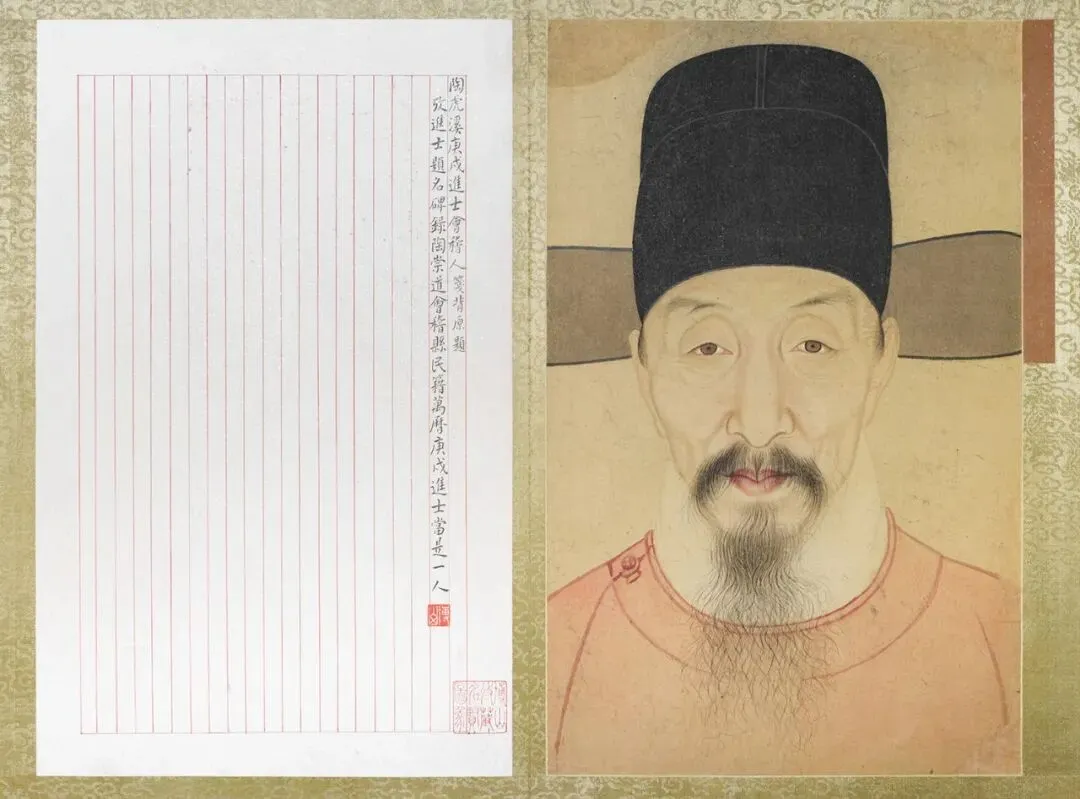 陶虎溪庚戌進士會稽人箋背原題
攷進士題名碑錄陶崇道會稽縣民籍萬曆庚戌進士當是一人